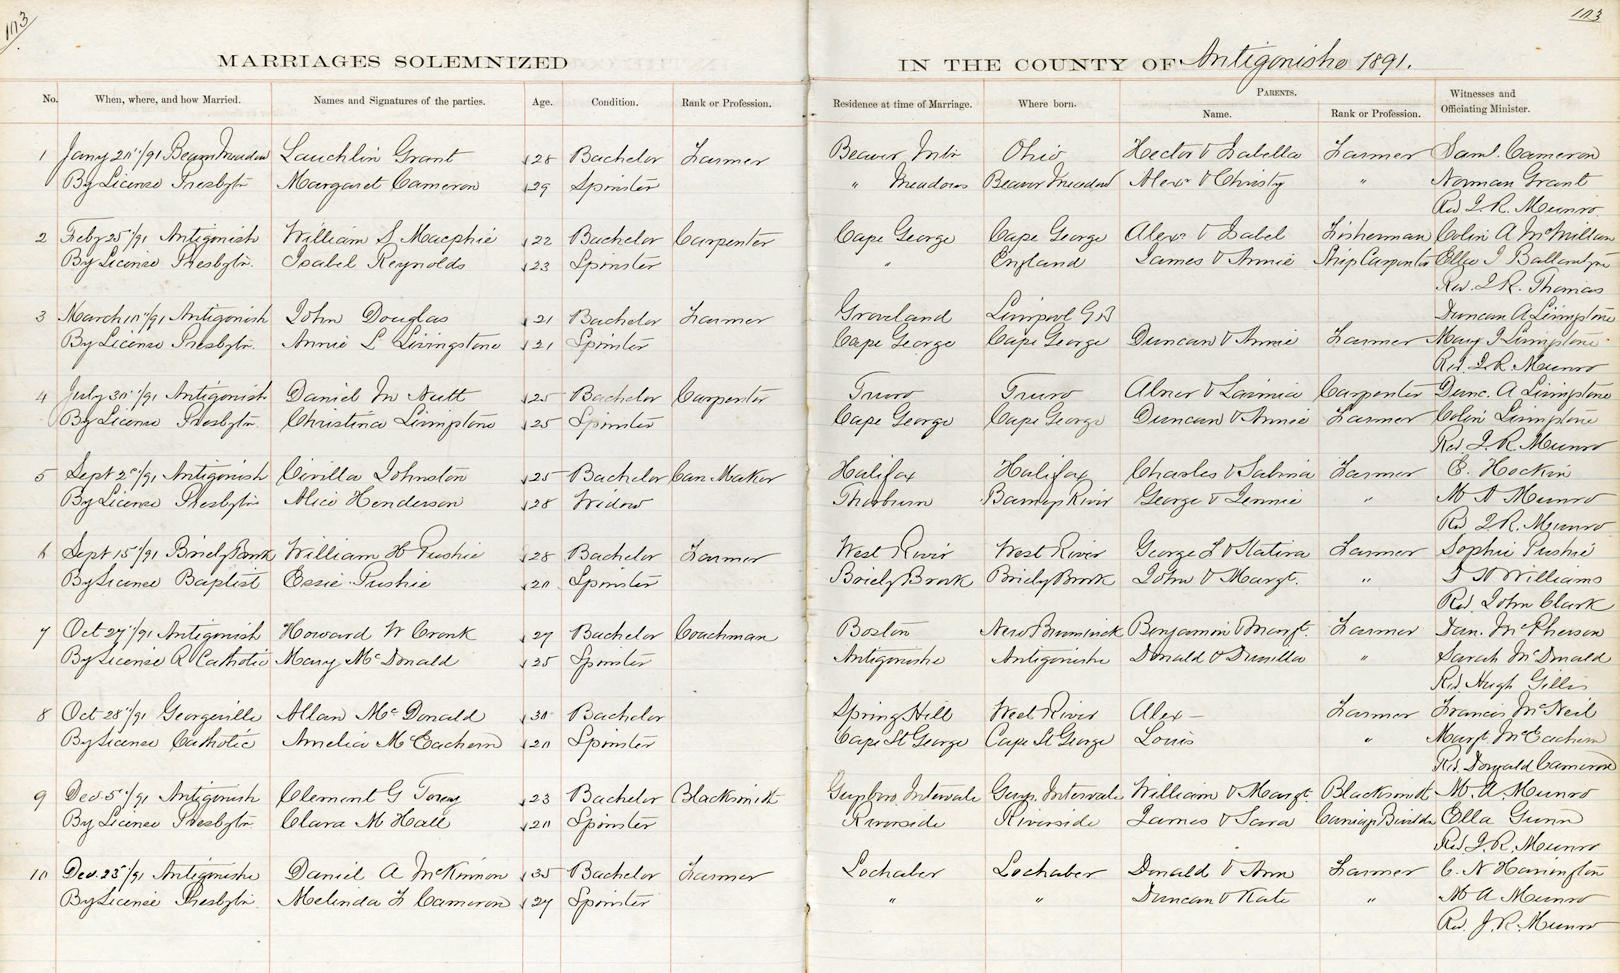 103
103
MARRIAGES SOLEMNIZED IN THE COUNTY OF Antigonishe 1891.
No. When, where, and how Married. Names and Signatures of the parties. Age. Condition. Rank or Profession. Residence at time of Marriage. Where born. PARENTS. Name. Rank or Profession. Witnesses and Officiating Minister.
1 Jany 20"/91 Beaver Meadow Lauchlin Grant 28 Bachelor Farmer Beaver Mtn Ohio Hector & Isabella Farmer Saml. Cameron
By License Presbytn Margaret Cameron 29 Spinster " Meadows Beaver Meadow Alexr & Christy " Norman Grant
Rev J. R. Munro
2 Feby 25"/91 Antigonish William S Macphie 22 Bachelor Carpenter Cape George Cape George Alexr & Isabel Fisherman Colin A McMillan
By License Presbytn. Isabel Reynolds 23 Spinster " England James & Annie Ship Carpenter Ella J Ballantyne
Rev. J. R. Thomas
3 March 10"/91 Antigonish John Douglas 21 Bachelor Farmer Groveland Liverpool G B Duncan A Livingstone
By License Presbytn. Annie L Livingstone 21 Spinster Cape George Cape George Duncan & Annie Farmer Mary J Livingstone
Rev. J. R. Munro
4 July 30"/91 Antigonish Daniel McNutt 25 Bachelor Carpenter Truro Truro Abner & Lavinia Carpenter Dunc. A Livingstone
By License Presbytn. Christina Livingstone 25 Spinster Cape George Cape George Duncan & Annie Farmer Colin Livingstone
Rev. J. R. Munro
5 Sept 2"/91 Antigonish Civilla Johnston 25 Bachelor Can Maker Halifax Halifax Charles & Sabina Farmer E. Hockin
By License Presbytn Alice Henderson 28 Widow Thorburn Barneys River George & Jennie " M A Munro
Rev J. R. Munro
6 Sept 15"/91 Briely Brook William H Pushie 28 Bachelor Farmer West River West River George L & Statira Farmer Sophie Pushie
By License Baptist Essie Pushie 20 Spinster Briely Brook Briely Brook John & Margt. " Williams
Rev. John Clark
7 Oct 27"/91 Antigonish Howard W Cronk 27 Bachelor Coachman Boston New Brunswick Benjamin & Margt. Farmer Dan. McPherson
By License R Catholic Mary McDonald 25 Spinster Antigonishe Antigonishe Donald & Drusilla " Sarah McDonald
Rev. Hugh Gillis
8 Oct 28"/91 Georgeville Allan McDonald 30 Bachelor Spring Hill West River Alex — Farmer Francis McNeil
By License Catholic Amelia McEachern 20 Spinster Cape St George Cape St George Louis " Margt. McEachern
Rev. Donald Cameron
9 Dec 5"/91 Antigonish Clement G Torey 23 Bachelor Blacksmith Guysboro Intervale Guys. Intervale William & Margt. Blacksmith M. A. Munro
By License Presbytn. Clara M Hall 20 Spinster Riverside Riverside James & Sara Carriage Builder Ella Gunn
Rev J. R. Munro
10 Dec. 23"/91 Antigonishe Daniel A McKinnon 35 Bachelor Farmer Lochaber Lochaber Donald & Ann Farmer C. N Harrington
By License Presbytn. Melinda F Cameron 27 Spinster " " Duncan & Kate " M A Munro
Rev. J. R. Munro